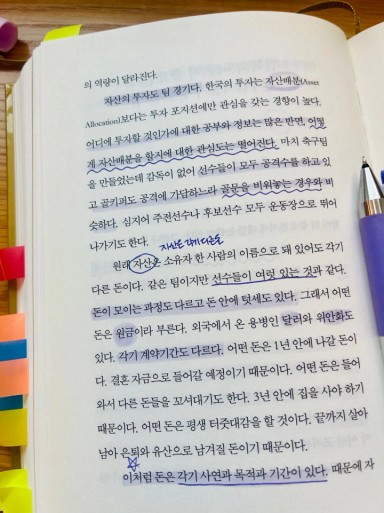 의 역량이 달라진다.
자산의 투자도 팀 경기다. 한국의 투자는 자산배분(Asset
Allocation)보다는 투자 포지션에만 관심을 갖는 경향이 높다.
어디에 투자할 것인가에 대한 공부와 정보는 많은 반면, 어떻
게 자산배분을 할지에 대한 관심도는 떨어진다. 마치 축구팀
을 만들었는데 감독이 없어 선수들이 모두 공격수를 하고 있
고 골키퍼도 공격에 가담하느라 골문을 비워놓는 경우와 비
슷하다. 심지어 주전선수나 후보선수 모두 운동장으로 뛰어
나가기도 한다.
원래 자산은 소유자 한 사람의 이름으로 돼 있어도 각기
다른 돈이다. 같은 팀이지만 선수들이 여럿 있는 것과 같다.
돈이 모이는 과정도 다르고 돈 안에 텃세도 있다. 그래서 어떤
돈은 원금이라 부른다. 외국에서 온 용병인 달러와 위안화도
있다. 각기 계약기간도 다르다. 어떤 돈은 1년 안에 나갈 돈이
다. 결혼 자금으로 들어갈 예정이기 때문이다. 어떤 돈은 들어
와서 다른 돈들을 꼬셔대기도 한다. 3년 안에 집을 사야 하기
때문이다. 어떤 돈은 평생 터줏대감을 할 것이다. 끝까지 살아
남아 은퇴와 유산으로 남겨질 돈이기 때문이다.
이처럼 돈은 각기 사연과 목적과 기간이 있다. 때문에 자